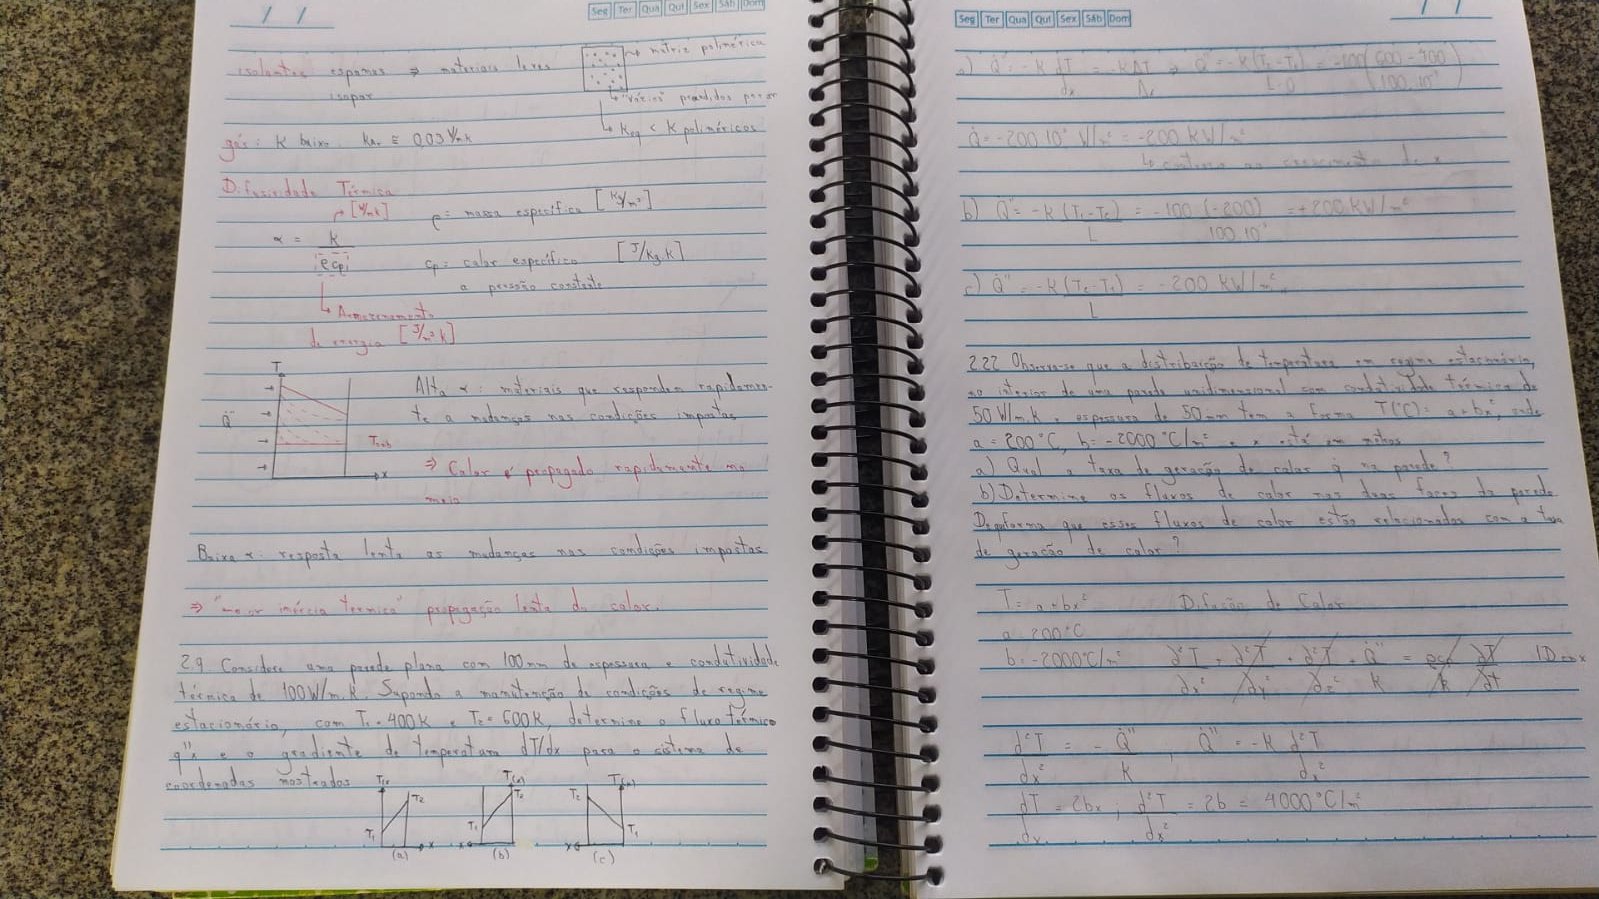 Seg Ter Qua Qui Sex Sáb Dom
isolantes espumas ⇒ materiais leves → matriz polimérica
isopor ↳ "vários" perdidos por ar
gás: K baixo. kar ≅ 0,03 W/mK ↳ Keq < K poliméricos
Difusividade Térmica
[W/mk]
ρ = massa específica [kg/m³]
α = k
ρcp cp = calor específico [J/kg.K]
a pressão constante
↳ Armazenamento
de energia [J/m³k]
T
Alto α: materiais que respondem rapidamen-
te a mudanças nas condições impostas
Q̇"
⇒ Calor é propagado rapidamente no
x
meio
Baixa α: resposta lenta as mudanças nas condições impostas
⇒ inércia térmica" propagação lenta do calor.
2.9 Considere uma parede plana com 100mm de espessura e condutividade
térmica de 100W/m.K. Supondo a manutenção de condições de regime
estacionário, com T₁ = 400K e T₂ = 600K, determine o fluxo térmico
q"x e o gradiente de temperatura dT/dx para o sistema de
coordenadas mostrados
T(x) T(x) T(x)
T₂ T₂ T₂
T₁ T₁ T₁
x x x
(a) (b) (c)
Seg Ter Qua Qui Sex Sáb Dom
a) Q̇" = -K dT = -K ΔT ⇒ Q̇" = -K (T₂-T₁) = -100 (600 - 400)
dx Δx L-0 (100.10⁻³)
Q̇ = -200.10³ W/m² = -200 KW/m²
↳ contrário ao crescimento de x
b) Q̇" = -K (T₁-T₂) = -100 (-200) = +200 KW/m²
L 100.10⁻³
c) Q̇" = -K (T₂-T₁) = -200 KW/m²
L
2.22 Observa-se que a distribuição de temperatura em regime estacionário,
no interior de uma parede unidimensional com condutividade térmica de
50 W/m.K e espessura de 50mm tem a forma T(°C) = a+bx², onde
a = 200°C, b = -2000 °C/m² e x está em metros
a) Qual a taxa de geração de calor q̇ na parede?
b) Determine os fluxos de calor nas duas faces da parede
De que forma que esses fluxos de calor estão relacionados com a taxa
de geração de calor?
T = a + bx² Difusão de Calor
a = 200°C
b = -2000°C/m² ∂²T + ∂²T + ∂²T + Q̇" = ρcp ∂T 1D em x
∂x² ∂y² ∂z² k k ∂t
d²T = - Q̇" , Q̇" = -K d²T
dx² K dx²
dT = 2bx ; d²T = 2b = 4000°C/m²
dx dx²